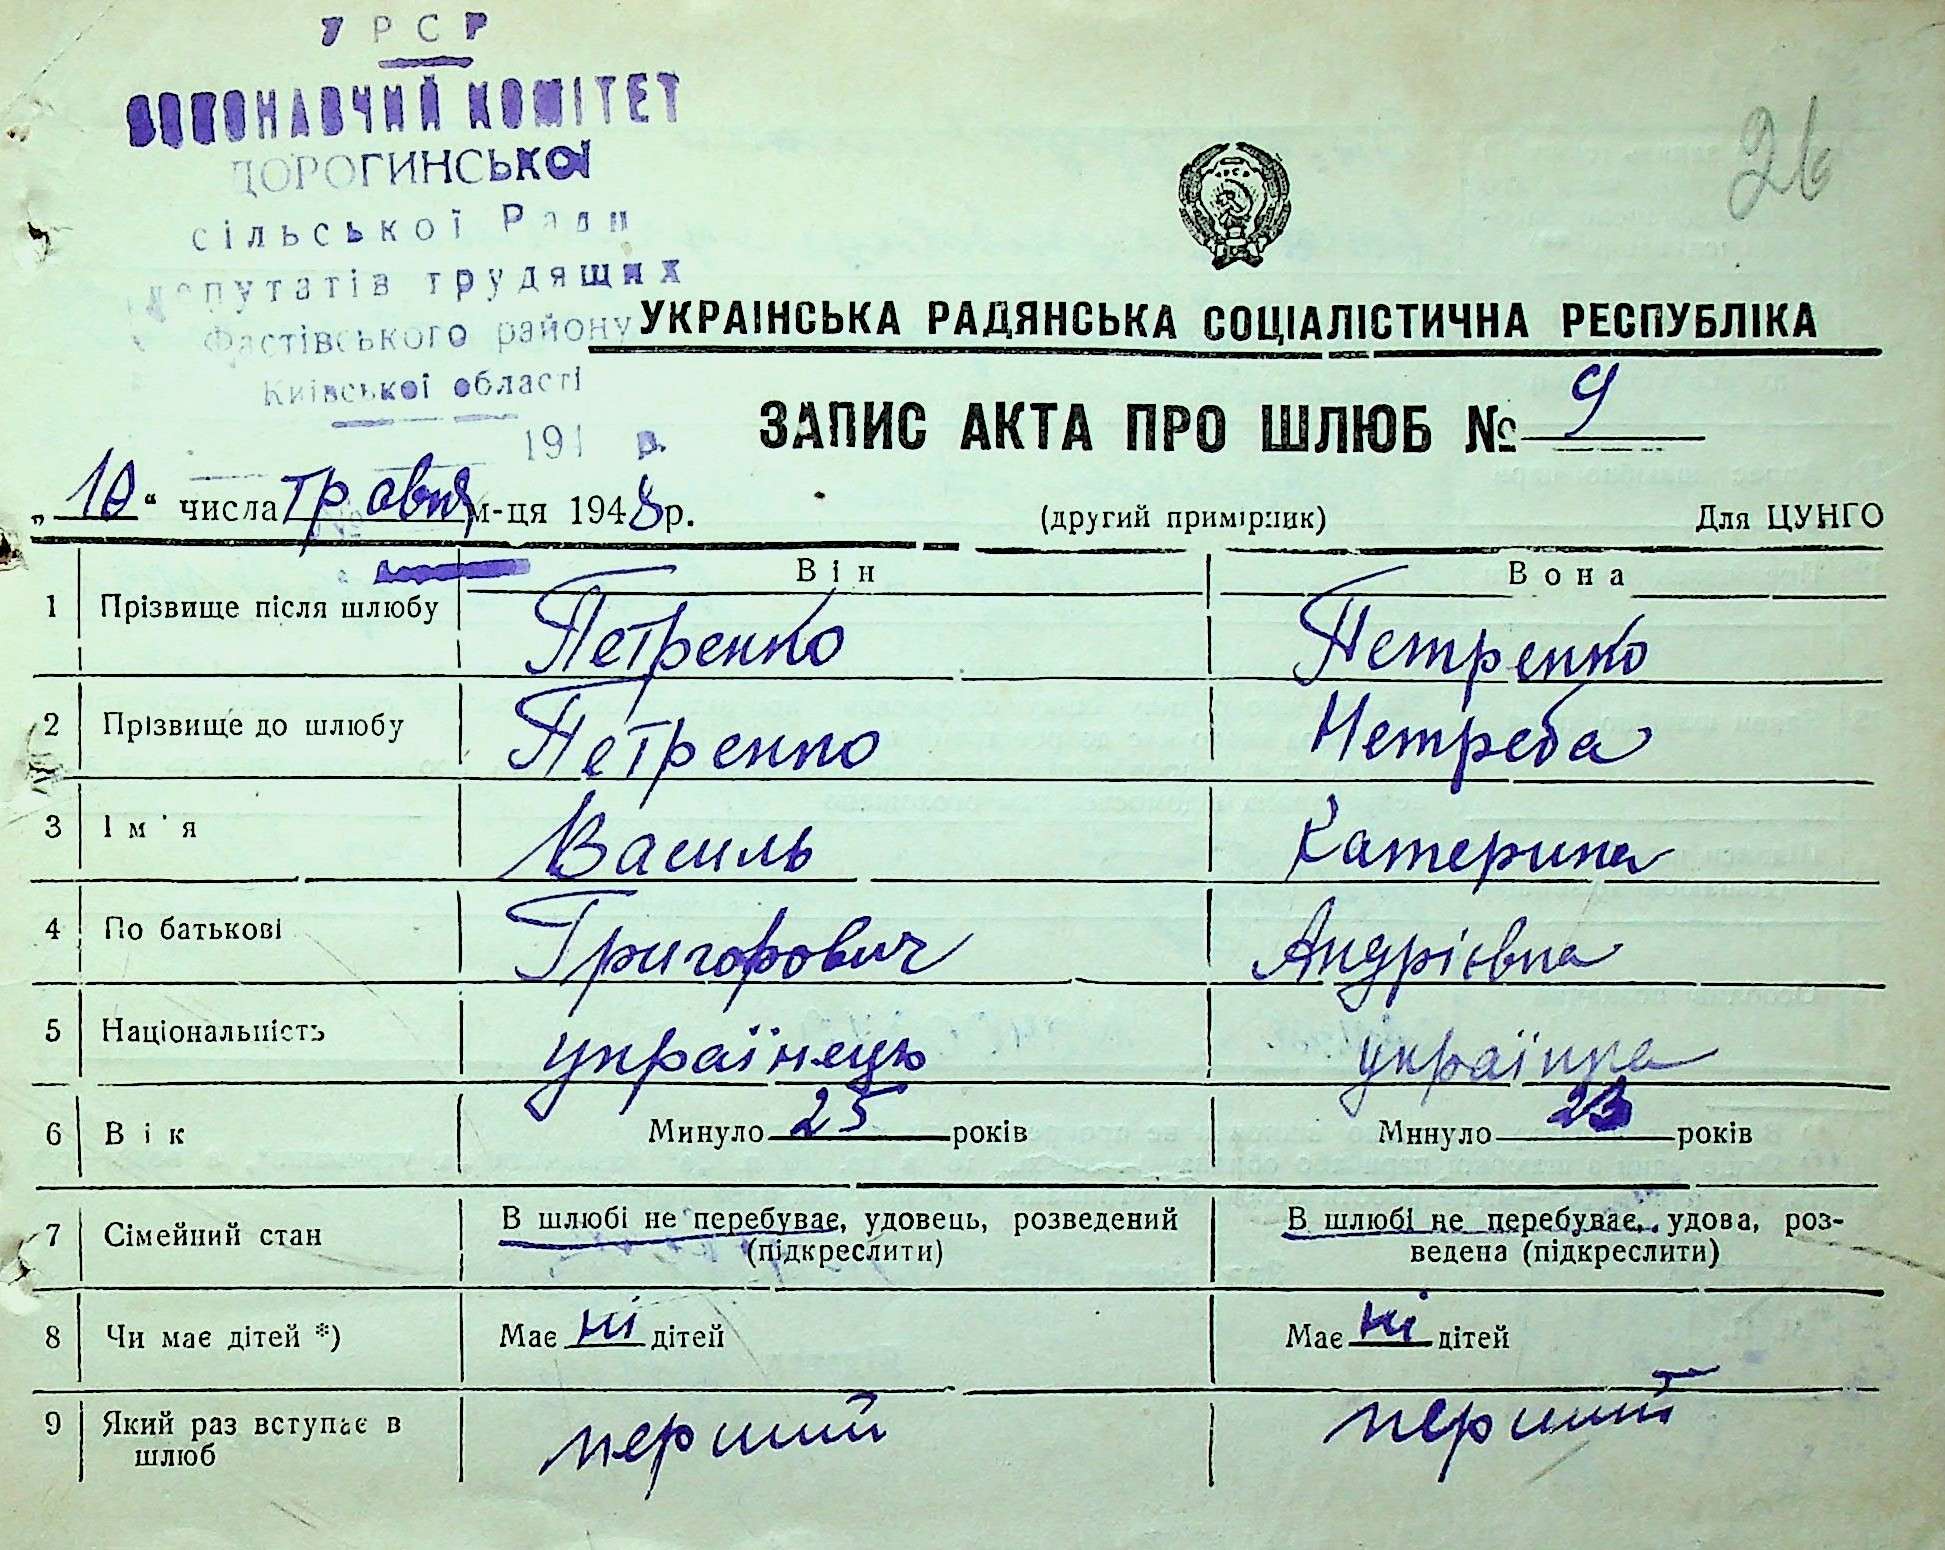 УРСР
ВИКОНАВЧИЙ КОМІТЕТ
ДОРОГИНСЬКОЇ
сільської Ради
депутатів трудящих
Фастівського району
Київської області
194 р.
26
УРСР
УКРАІНСЬКА РАДЯНСЬКА СОЦІАЛІСТИЧНА РЕСПУБЛІКА
ЗАПИС АКТА ПРО ШЛЮБ № 9
„10“ числа травня м-ця 1948 р. (другий примірник) Для ЦУНГО
Він Вона
1 Прізвище після шлюбу Петренко Петренко
2 Прізвище до шлюбу Петренко Нетреба
3 Ім'я Василь Катерина
4 По батькові Григорович Андріївна
5 Національність українець українка
6 Вік Минуло 25 років Минуло 23 років
7 Сімейний стан В шлюбі не перебуває, удовець, розведений В шлюбі не перебуває, удова, роз-
(підкреслити) ведена (підкреслити)
8 Чи має дітей *) Має ні дітей Має ні дітей
9 Який раз вступає в перший перший
шлюб